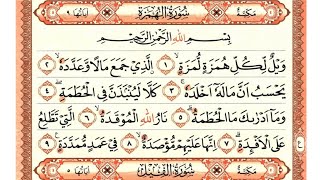 سُورَةُ الْهُمَزَةِ
بِسْمِ اللهِ الرَّحْمٰنِ الرَّحِيْمِ
وَيْلٌ لِّكُلِّ هُمَزَةٍ لُّمَزَةٍ ۙ ١ الَّذِيْ جَمَعَ مَالًا وَّعَدَّدَهٗ ۙ ٢
يَحْسَبُ اَنَّ مَالَهٗٓ اَخْلَدَهٗ ۚ ٣ كَلَّا لَيُنْۢبَذَنَّ فِى الْحُطَمَةِ ۖ ٤
وَمَآ اَدْرٰىكَ مَا الْحُطَمَةُ ۗ ٥ نَارُ اللهِ الْمُوْقَدَةُ ۙ ٦ الَّتِيْ تَطَّلِعُ
عَلَى الْاَفْـِٕدَةِ ۗ ٧ اِنَّهَا عَلَيْهِمْ مُّؤْصَدَةٌ ۙ ٨ فِيْ عَمَدٍ مُّمَدَّدَةٍ ٩
سُورَةُ الْفِيْلِ